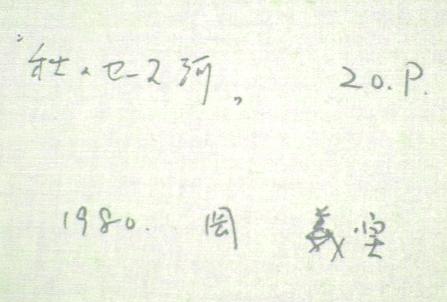 セーヌ河 20.P.
1980. 岡 義実